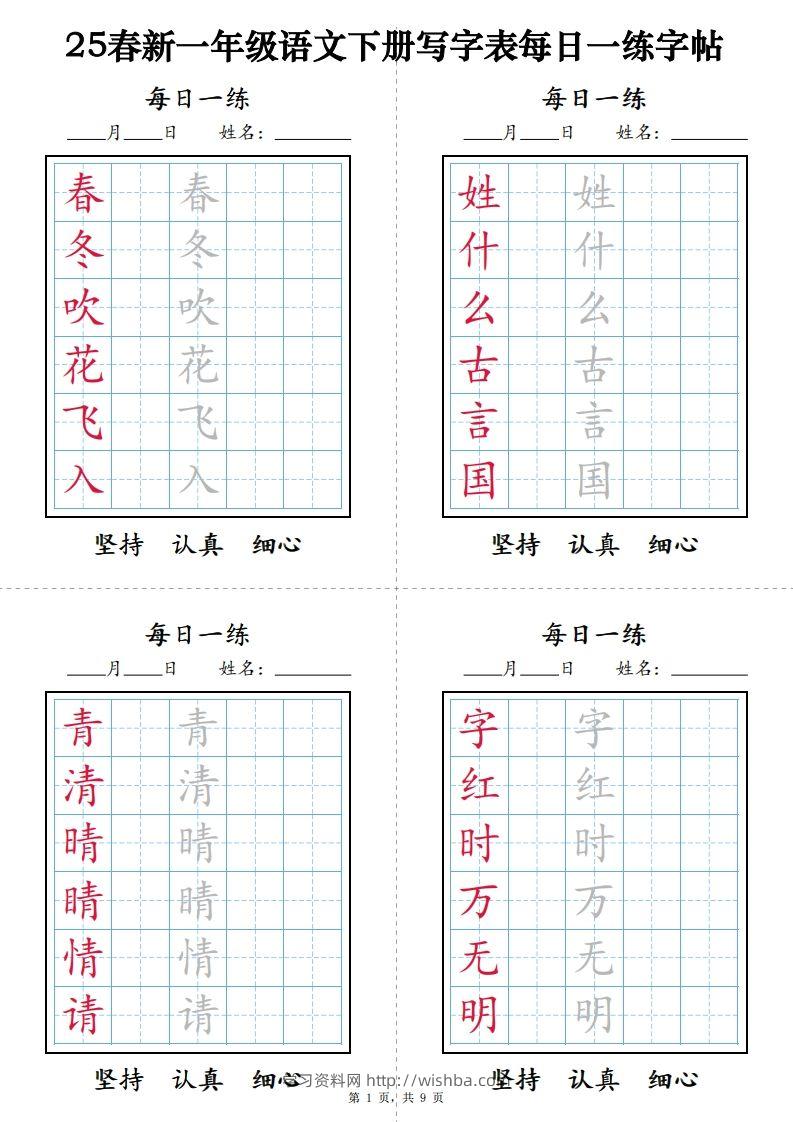 25春新一年级语文下册写字表每日一练字帖
每日一练
____月____日 姓名：________
春 春
冬 冬
吹 吹
花 花
飞 飞
入 入
坚持 认真 细心
每日一练
____月____日 姓名：________
姓 姓
什 什
么 么
古 古
言 言
国 国
坚持 认真 细心
每日一练
____月____日 姓名：________
青 青
清 清
晴 晴
睛 睛
情 情
请 请
坚持 认真 细心
每日一练
____月____日 姓名：________
字 字
红 红
时 时
万 万
无 无
明 明
坚持 认真 细心
学习资料网 http://wishba.com
第 1 页，共 9 页